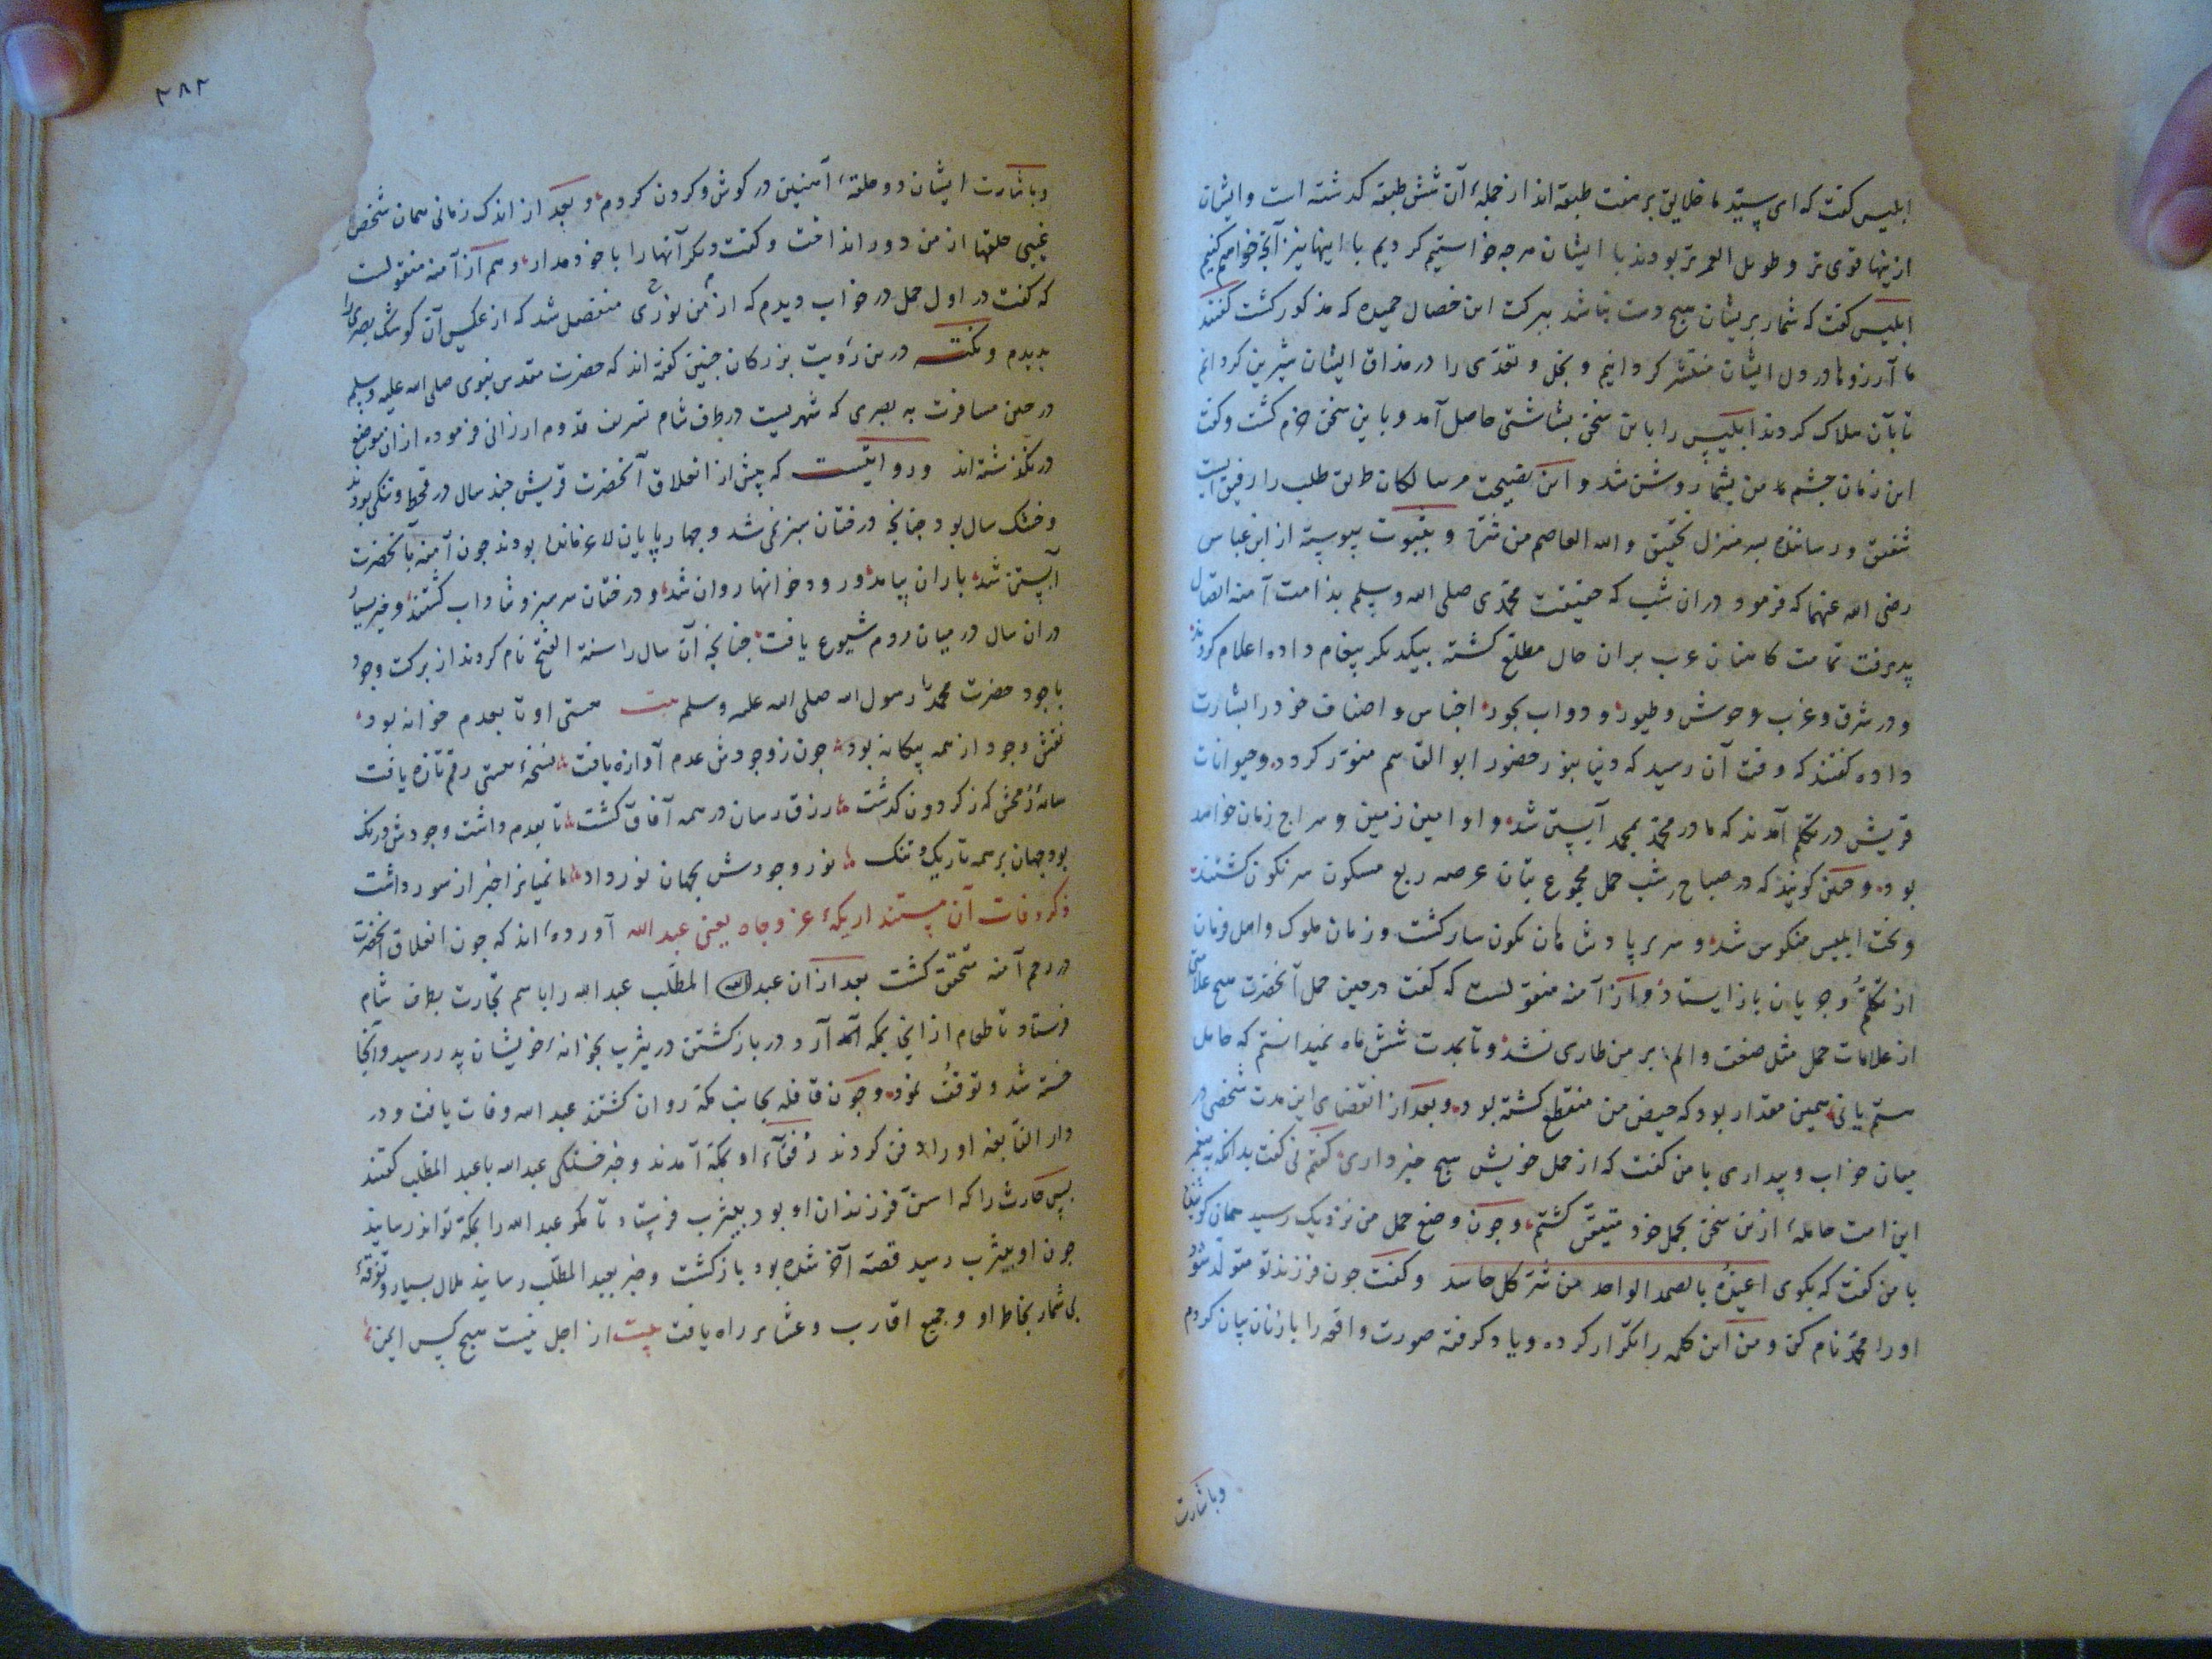 ابلیس کفت که ای سپید ما خلایق بر هفت طبقه اند از جملهٔ آن شش طبقه کدشته است و ایشان
ازینها قوی تر و طویل العمر تر بودند با ایشان هرجه خواستیم کردیم با اینها نیز آنچه خواهیم کنیم
ابلیس کفت که شمار بریشان هیچ دست نباشد ببرکت این خصال حمیده که مذکور کشت کفتند
ما آرزوها در دل ایشان منقش کردانیم و بخل و تعدی را در مذاق ایشان شیرین کردانم
تا بآن هلاک کردند ابلیس را باین سخن بشاشتی حاصل آمد و باین سخن خرم کشت و کفت
این زمان جشم من بشما روشن شد و این نصیحت مر سالکان طریق طلب را رفیق ایست
شفیق و رسانندهٔ بسر منزل تحقیق والله العاصم من شرّها و بثبوت پیوسته از ابن عباس
رضی الله عنهما که فرمود در ان شب که حقیقت محمدی صلی الله وسلم بذات آمنه اتصال
پدیرفت تمامت کاهنان عرب بران حال مطلع کشته بیکدیکر پیغام داده اعلام کردند
و در شرق و غرب وحوش و طیور و دواب بحور اجناس و اصناف خود را بشارت
داده کفتند که وقت آن رسید که دنیا بنور حضور ابو القاسم منور کردد و حیوانات
قریش در تکلم آمدند که مادر محمد بمحمد آبستن شد و او امین زمین و سراج زمان خواهد
بود و جنین کویند که در صباح شب حمل مجموع بتان عرصه ربع مسکون سرنکون کشتند
و تخت ابلیس منکوس شد و سریر پادشاهان نکون سار کشت و زمان ملوک و اهل فرمان
از تکلم و جریان باز ایستاد و از آمنه منقولست که کفت در حین حمل آنحضرت هیج علامتی
از علامات حمل مثل ضعف و الم بر من طاری نشد و تا بمدت شش ماه نمیدانستم که حامل
ستم یانی همین مقدار بود که حیض من منقطع کشته بود و بعد از انقضای این مدت شخصی در
میان خواب و بیداری با من کفت که از حمل خویش هیج خبر داری کفتم نی کفت بدانکه به پیغمبر
این امت حاملهٔ از من سخن بحمل خود متیقن کشتم و جون وضع حمل من نزدیک رسید همان کوینده
با من کفت که بکوی اعیذه بالصمد الواحد من شر کل حاسد و کفت جون فرزند تو متولد شود
او را محمد نام کن و من این کلمه را تکرار کرده و یاد کرفته صورت واقعه را با زنان بیان کردم
وباشارت
٢٨٢
وباشارت ایشان دو حلقهٔ آهنین در کوش و کردن کردم و بعد از اندک زمانی همان شخص
غیبی حلقها از من دور انداخت و کفت دیکر آنها را با خود مدار و هم از آمنه منقولست
که کفت در اول حمل در خواب دیدم که از من نوری منفصل شد که از عکس آن کوشک بصری را
بدیدم و نکته درین رؤیت بزرکان جنین کفته اند که حضرت مقدس نبوی صلی الله علیه وسلم
در حین مسافرت به بصری که شهریست در طرف شام تشریف قدوم ارزانی فرموده از ان موضع
درنکذشته اند و روایتست که پیش از انعلاق آنحضرت قریش جند سال در قحط و تنکی بودند
و خشک سال بود جنانجه درختان سبز نمی شد و جهار پایان لاغر مانده بودند جون آمنه بآنحضرت
آبستن شد باران بیامد و رودخوانها روان شد و درختان سرسبز و شاداب کشتند و خیر بسیار
در ان سال در میان مردم شیوع یافت جنانجه آن سال را سنة الفتح نام کردند از برکت وجود
باجود حضرت محمد رسول الله صلی الله علیه وسلم بیت هستی او تا بعدم خوانه بود
نقش وجود از همه بیکانه بود جون ز وجودش عدم آوازه یافت نسخهٔ هستی رقم تازه یافت
سایهٔ رخش که ز کردون کدشت رزق رسان در همه آفاق کشت تا بعدم داشت وجودش درنک
بود جهان بر همه تاریک و تنک نور وجودش بجهان نور داد
ذکر وفات آن مستند اریکهٔ عز و جاه یعنی عبد الله آورده اند که جون انعلاق آنحضرت
در رحم آمنه متحقق کشت بعد ازان عبد المطلب عبد الله را باسم تجارت بطرف شام
فرستاد تا طعام از انجا بمکه آرد و در باز کشتن در یثرب بخوانهٔ خویشان پدر رسید و آنجا
خسته شد و توقف نمود و جون قافله بجانب مکه روان کشتند عبد الله وفات یافت و در
دار النابغه او را دفن کردند رفقاء او بمکه آمدند و خبر خستکی عبد الله با عبد المطلب کفتند
پس حارث را که اسن فرزندان او بود بیثرب فرستاد تا مکر عبد الله را بمکه تواند رسانید
جون او بیثرب رسید قصه آخر شده بود باز کشت و خبر بعبد المطلب رسانید ملال بسیار و تفرقهٔ
بی شمار بخاطر او و جمیع اقارب و عشایر راه یافت بیت از اجل نیست هیج کس ایمن